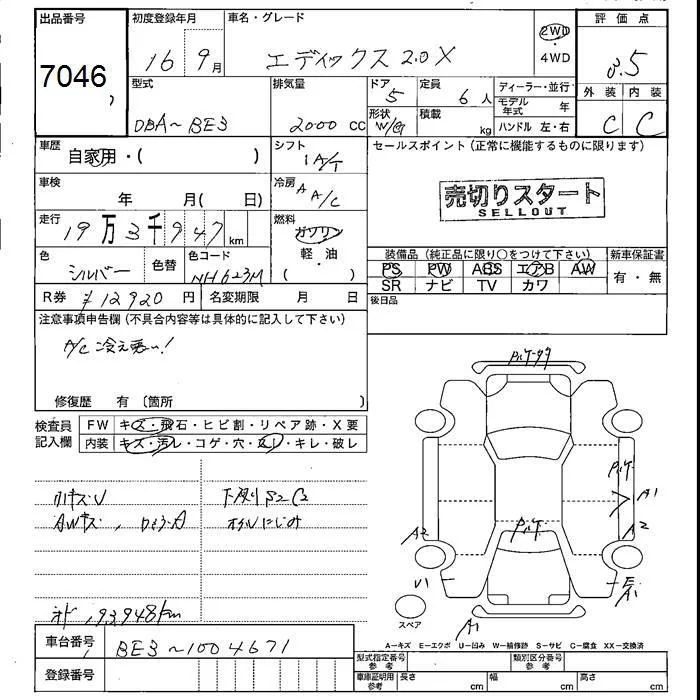 出品番号
7046
初度登録年月
16 9月
車名・グレード
エディックス 2.0X
2WD
・
4WD
評価点
3.5
型式
DBA~BE3
排気量
2000 cc
ドア
5
形状
W/G
定員
6人
積載
kg
ディーラー・並行
モデル年式 年
ハンドル 左・右
外装 内装
C C
車歴
自家用・( )
シフト
IA/T
セールスポイント (正常に機能するものに限ります)
売切りスタート
SELLOUT
車検
年 月( 日)
冷房
AA/C
走行
19万3千947km
燃料
ガソリン
軽・油
・
( )
色
シルバー
色替
色コード
NH623M
装備品 (純正品に限り○をつけて下さい)
PS PW ABS エアB AW
SR ナビ TV カワ
新車保証書
有・無
R券 ¥12920 円
名変期限 月 日
後日品
注意事項申告欄 (不具合内容等は具体的に記入して下さい)
A/C 冷え悪い!
修復歴 有 〔箇所 〕
検査員
記入欄
FW キズ・飛石・ヒビ割・リペア跡・X要
内装 キズ・汚レ・コゲ・穴・スレ・キレ・破レ
小キズU
AWキズ,
下廻りS2C2
オイルにじみ
オド 193948km
A2
U1
A1
A1
A2
E
A1
スペア
A-キズ E-エクボ U-凹み W-補修跡 S-サビ C-腐食 XX-交換済
車台番号
BE3~1004671
登録番号
型式指定番号
参考
類別区分番号
参考
車庫証明用
参考
長さ cm
幅 cm
高さ cm